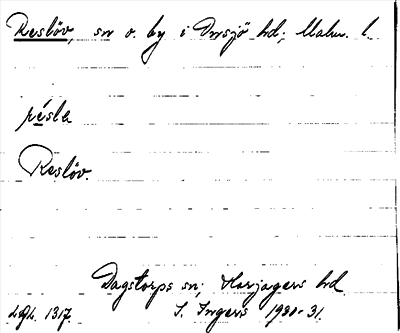 Reslöv, sn o. by i Onsjö hd; Malm. l.
résle
Reslöv.
Dagstorps sn; Harjagers hd.
LGL. 1317. S. Ingers 1930-31.